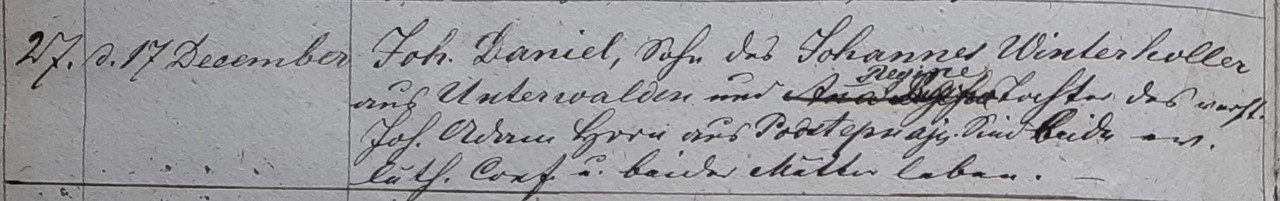 27. d. 17 December Joh. Daniel, Sohn des Johannes Winterholler
Regine
aus Unterwalden und Tochter des verst.
Joh. Adam Horn aus Podstepnaja. Sind beide ev.
luth. Conf. u. beider Mütter leben. —